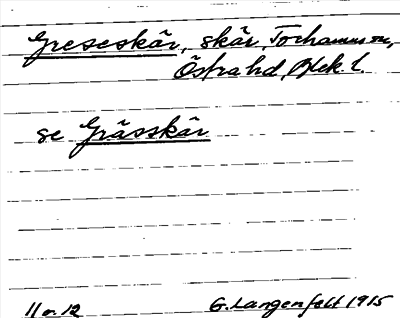 Greseskär, skär, Torhamns sn,
Östra hd, Blek. l.
se Grässkär
11 o. 12 G. Langenfelt 1915